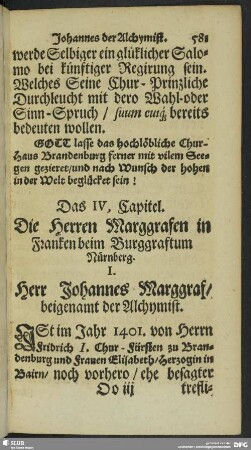 Johannes der Alchymist. 581
werde Selbiger ein glüklicher Salo-
mo bei künftiger Regirung sein.
Welches Seine Chur-Prinzliche
Durchleucht mit dero Wahl-oder
Sinn-Spruch / suum cuiq; bereits
bedeuten wollen.
GOTT lasse das hochlöbliche Chur-
Haus Brandenburg ferner mit vilem See-
gen gezieret / und nach Wunsch der hohen
in der Welt beglücket sein!
Das IV, Capitel.
Die Herren Marggrafen in
Franken beim Burggraftum
Nürnberg.
I.
Herr Johannes Marggraf /
beigenamt der Alchymist.
ISt im Jahr 1401. von Herrn
Fridrich I. Chur-Fürsten zu Bran-
denburg und Frauen Elisabeth / Herzogin in
Bairn / noch vorhero / ehe besagter
Oo iij trefli-
SLUB